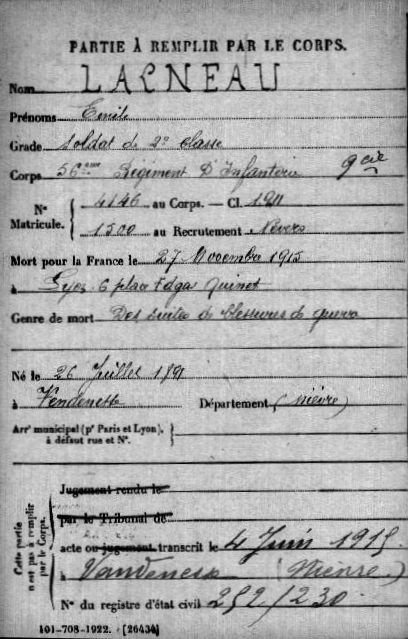 PARTIE À REMPLIR PAR LE CORPS.
Nom LACNEAU
Prénoms Emile
Grade Soldat de 2e classe
Corps 56ème Régiment D'Infanterie 9 cie
N° Matricule. { 4146 au Corps. — Cl. 1911
1500 au Recrutement Nevers
Mort pour la France le 27 Novembre 1915
à Lyon 6 place Edgar Quinet
Genre de mort Des suites de blessures de guerre
Né le 26 Juillet 1891
à Vendenesse Département (Nièvre)
Arrt municipal (pr Paris et Lyon), à défaut rue et N°. {
Cette partie n'est pas à remplir par le Corps.
Jugement rendu le
par le Tribunal de
acte ou jugement transcrit le 4 Juin 1915
à Vandenesse (Nièvre)
N° du registre d'état civil 252/230
101-708-1922. [26434]